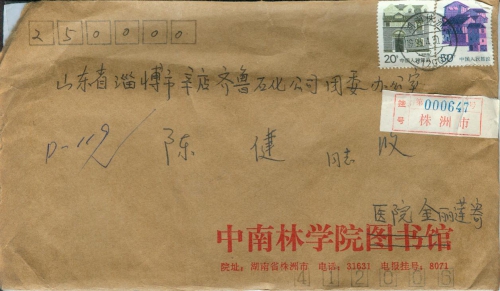 250000
20分 中国人民邮政
80分 中国人民邮政
山东省淄博市辛店齐鲁石化公司团委办公室
000647
号 株洲市
D-119
陈健 同志 收
医院 金丽莲寄
中南林学院图书馆
院址：湖南省株洲市 电话：31631 电报挂号：8071
412006